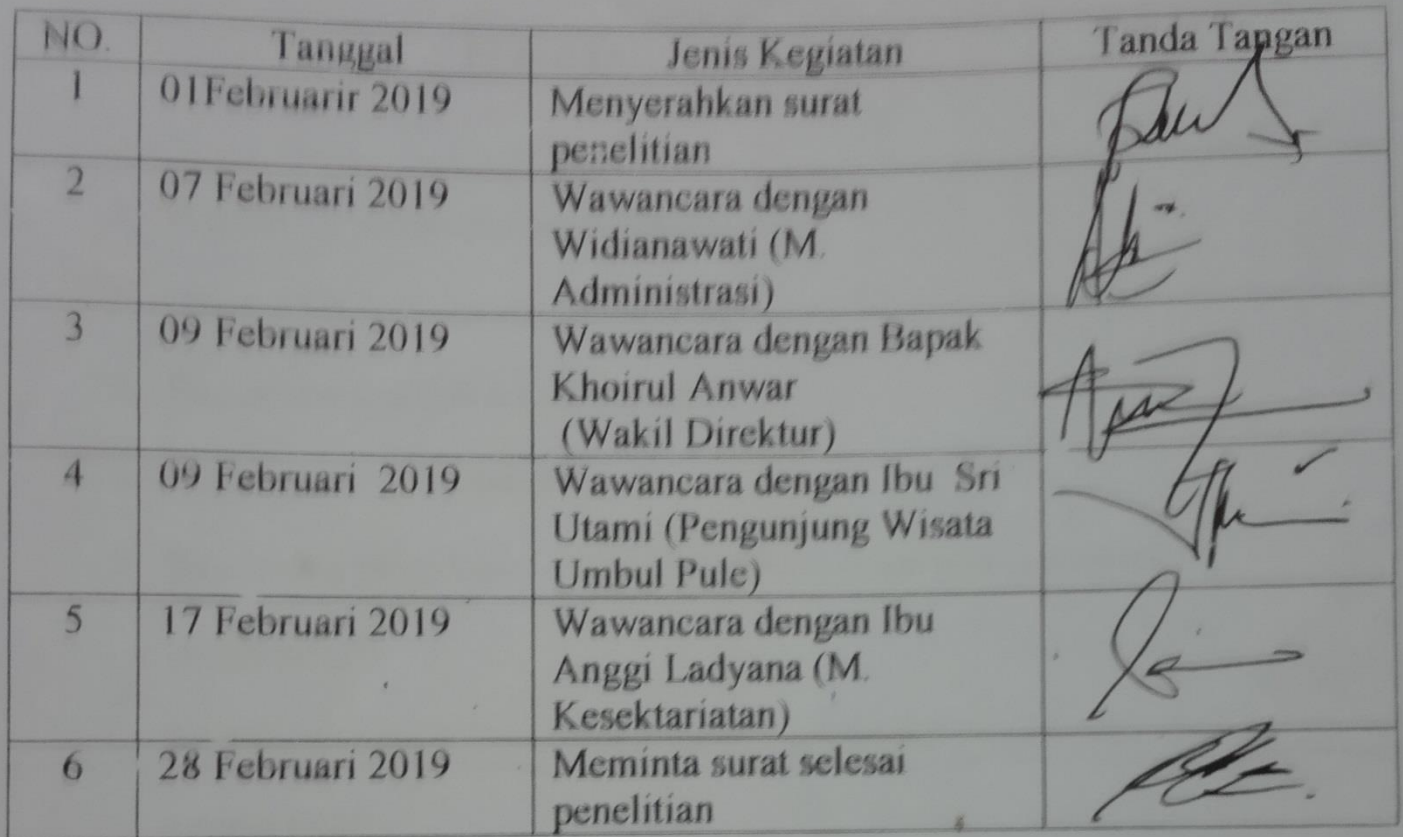 NO. Tanggal Jenis Kegiatan Tanda Tangan
1 01Februarir 2019 Menyerahkan surat
penelitian
2 07 Februari 2019 Wawancara dengan
Widianawati (M.
Administrasi)
3 09 Februari 2019 Wawancara dengan Bapak
Khoirul Anwar
(Wakil Direktur)
4 09 Februari 2019 Wawancara dengan Ibu Sri
Utami (Pengunjung Wisata
Umbul Pule)
5 17 Februari 2019 Wawancara dengan Ibu
Anggi Ladyana (M.
Kesektariatan)
6 28 Februari 2019 Meminta surat selesai
penelitian